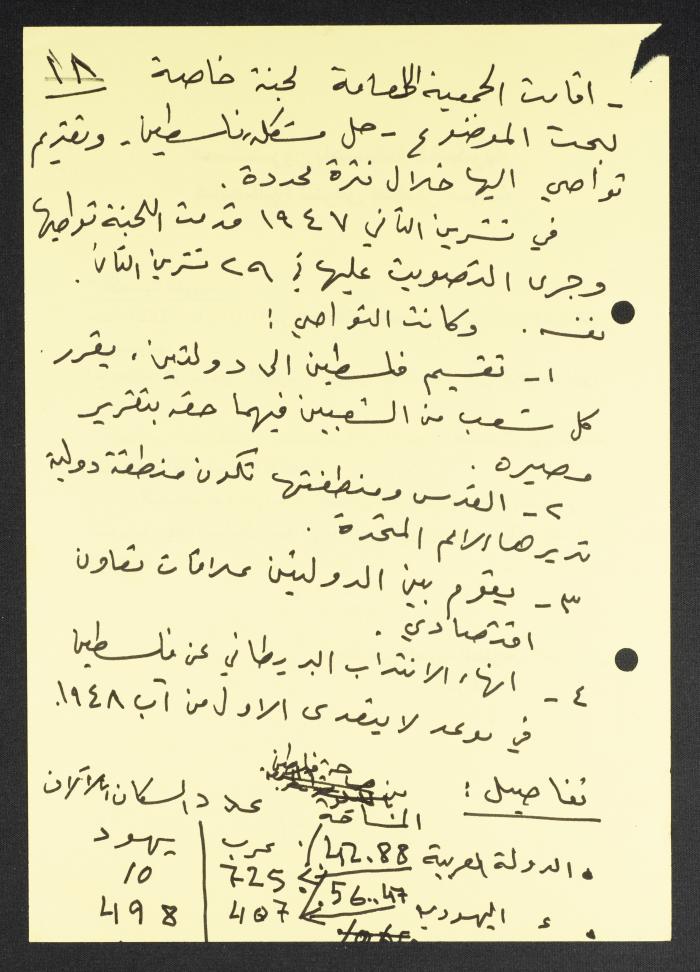 ١٨
- اقامت الجمعية العامة لجنة خاصة
لبحث الموضوع - حل مشكلة فلسطين - وتقديم
تواصي اليها خلال فترة محددة .
في تشرين الثاني ١٩٤٧ قدمت اللجنة تواصيها
وجرى التصويت عليها في ٢٩ تشرين الثاني
نفسه . وكانت التواصي :
١- تقسيم فلسطين الى دولتين ، يقرر
كل شعب من الشعبين فيهما حقه بتقرير
مصيره .
٢- القدس ومنطقتها تكون منطقة دولية
تديرها الامم المتحدة .
٣- يقوم بين الدولتين علاقات تعاون
اقتصادي .
٤- انهاء الانتداب البريطاني عن فلسطين
في موعد لا يتعدى الاول من آب ١٩٤٨.
تفاصيل : من مساحة فلسطين
المساحة عدد السكان بالآلاف
عرب يهود
. الدولة العربية 42.88 ٪ 725 10
. " اليهودية 56.47 ٪ 407 498